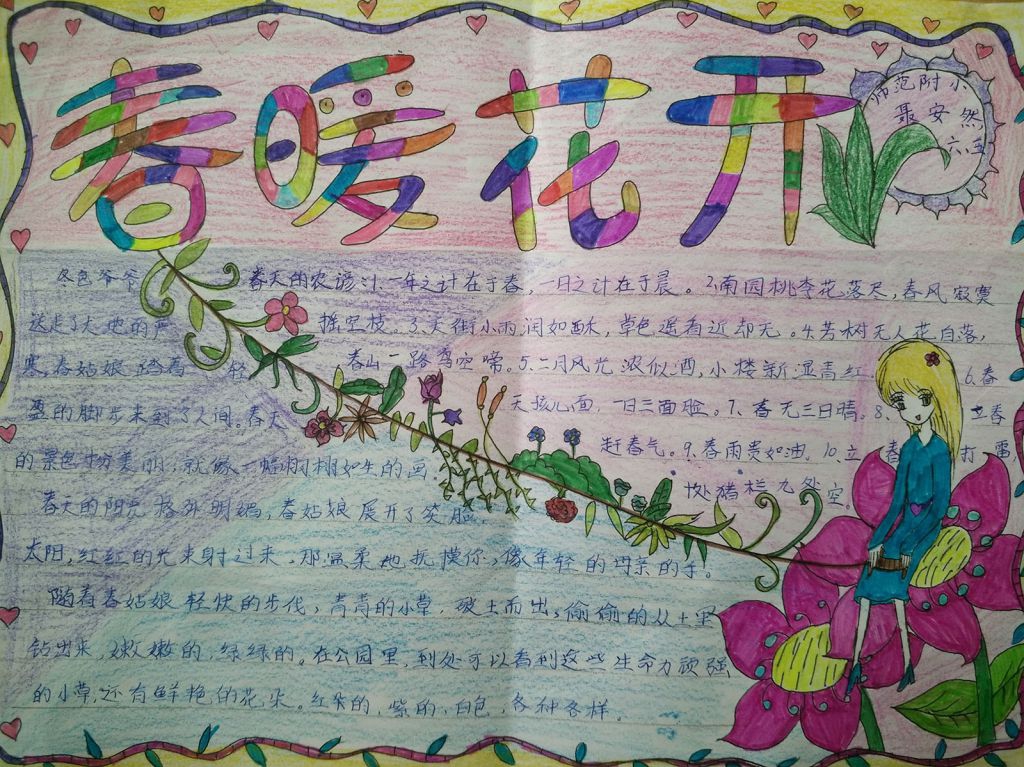 春暖花开
师范附小
聂安然
六.五
冬色爷爷
送走了大地的严
寒,春姑娘踏着轻
盈的脚步来到了人间。春天
的景色十分美丽,就像一幅栩栩如生的画。
春天的阳光格外明媚,春姑娘展开了笑脸,
太阳,红红的光束射过来,那温柔地抚摸你,像年轻的母亲的手。
随着春姑娘轻快的步伐,青青的小草,破土而出,偷偷的从土里
钻出来,嫩嫩的,绿绿的。在公园里,到处可以看到这些生命力顽强
的小草,还有鲜艳的花朵。红朵的,紫的,白色,各种各样。
春天的农谚:1.一年之计在于春,一日之计在于晨。2.南园桃李花落尽,春风寂寞
摇空枝。3.天街小雨润如酥,草色遥看近却无。4.芳树无人花自落,
春山一路鸟空啼。5.二月风光浓似酒,小楼新湿青红
6.春
天孩儿面,一日三面脸。7、春无三日晴。8.立春
赶春气。9.春雨贵如油。10.立春打雷
十处猪栏九处空。